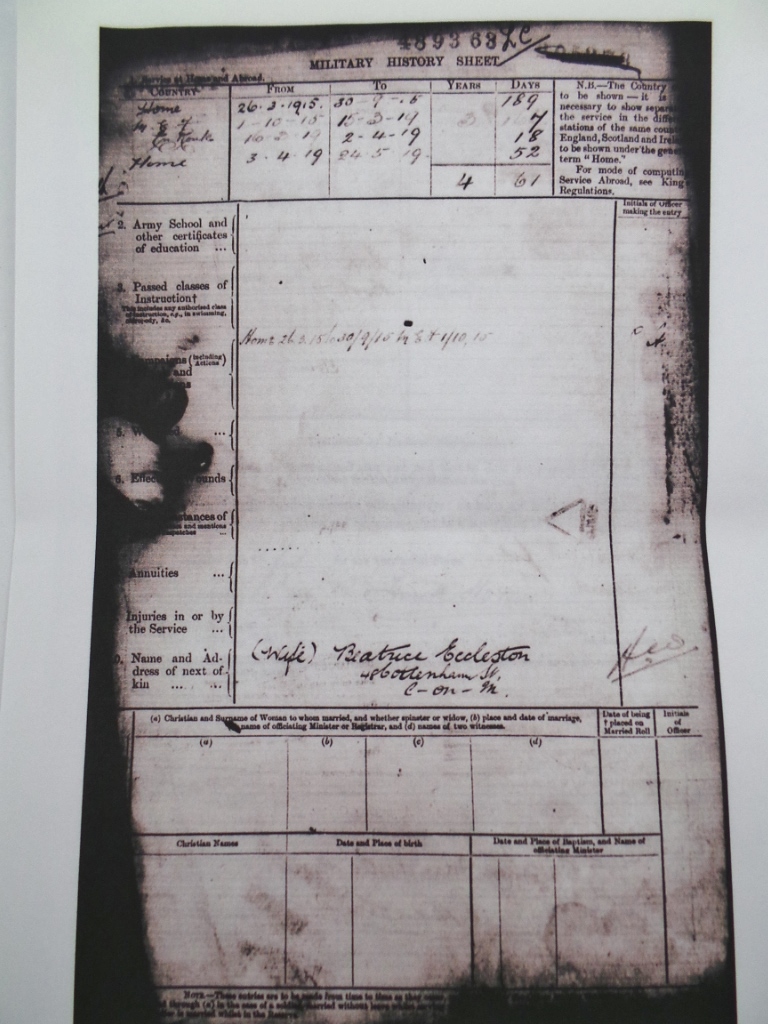 489368
MILITARY HISTORY SHEET
1. Service at Home and Abroad.
COUNTRY FROM TO YEARS DAYS
Home 26-3-1915. 30-9-15 189
1-10-15 15-3-19 3
16-3-19 2-4-19 18
Home 3.4.19 24.5.19. 52
4 61
N.B.—The Country
to be shown—it is
necessary to show
the service in the
stations of the same
England, Scotland and
to be shown under the
term "Home."
For mode of computing
Service Abroad, see King's
Regulations.
Initials of Officer
making the entry
2. Army School and
other certificates
of education ...
3. Passed classes of
Instruction†
Home 26.3.15 to 30/9/15 1/10/15
(including
Actions)
and
5.
...
6.
...
Annuities ...
Injuries in or by
the Service ...
9. Name and Ad-
dress of next of
kin ... ...
(Wife) Beatrice Eccleston
48 Cottenham St.
C-on-M.
(a) Christian and Surname of Woman to whom married, and whether spinster or widow, (b) place and date of marriage,
name of officiating Minister or Registrar, and (d) names of two witnesses.
Date of being
placed on
Married Roll
Initials
of
Officer
(a) (b) (c) (d)
Christian Names Date and Place of birth Date and Place of Baptism, and Name of
officiating Minister
NOTE.—These entries are to be made from time to time as they